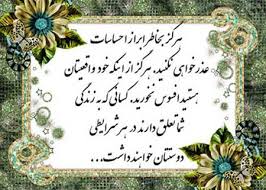 هرگز بخاطر ابراز احساسات
عذرخواهی نکنید، هرگز از اینکه خود واقعیتان
هستید افسوس نخورید. کسانی که به زندگی
شما تعلق دارند در هر شرایطی
دوستتان خواهند داشت...